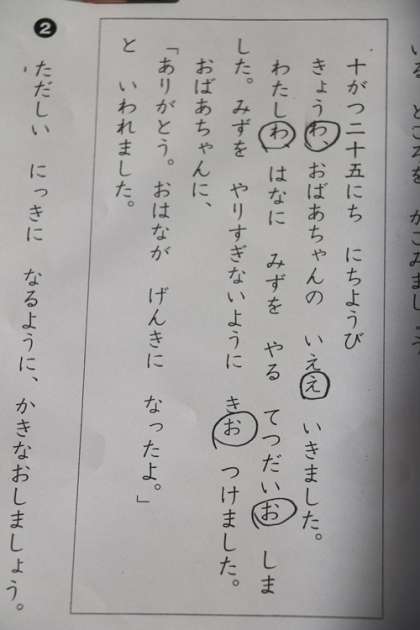 ところを かこみましょう
十がつ二十五にち にちようび
きょうわ、おばあちゃんの いええ いきました。
わたしわ はなに みずを やる てつだいお しま
した。みずを やりすぎないように きお つけました。
おばあちゃんに、
「ありがとう。おはなが げんきに なったよ。」
と いわれました。
❷ ただしい にっきに なるように、かきなおしましょう。